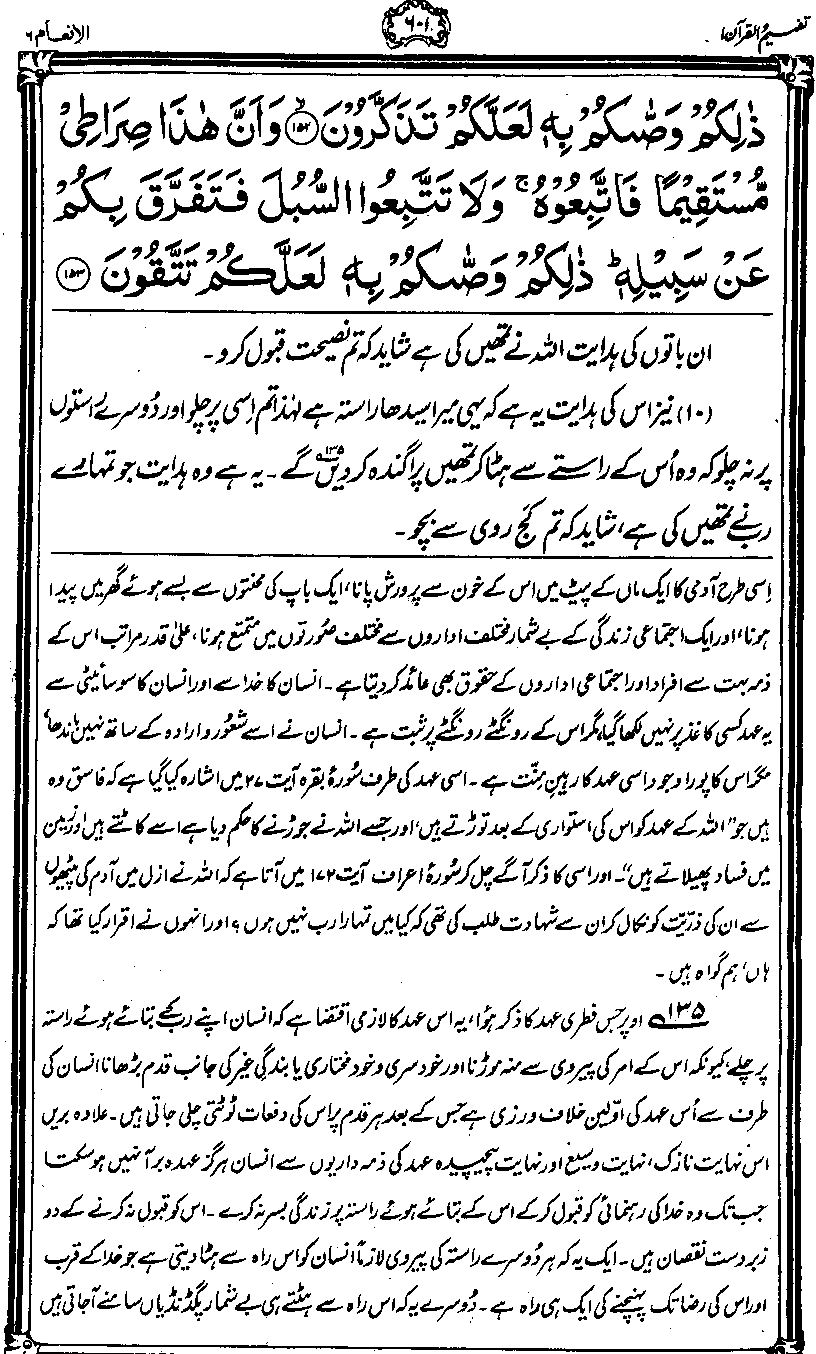 تفہیم القرآن ۱
۶۰۱
الانعام ۶
ذٰلِكُمْ وَصّٰىكُمْ بِهٖ لَعَلَّكُمْ تَذَكَّرُوْنَ ۝۱۵۲ وَاَنَّ هٰذَا صِرَاطِيْ
مُسْتَقِيْمًا فَاتَّبِعُوْهُ ۚ وَلَا تَتَّبِعُوا السُّبُلَ فَتَفَرَّقَ بِكُمْ
عَنْ سَبِيْلِهٖ ؕ ذٰلِكُمْ وَصّٰىكُمْ بِهٖ لَعَلَّكُمْ تَتَّقُوْنَ ۝۱۵۳
ان باتوں کی ہدایت اللہ نے تمھیں کی ہے شاید کہ تم نصیحت قبول کرو۔
(۱۰) نیز اس کی ہدایت یہ ہے کہ یہی میرا سیدھا راستہ ہے لہٰذا تم اِسی پر چلو اور دُوسرے راستوں
پر نہ چلو کہ وہ اُس کے راستے سے ہٹا کر تمھیں پراگندہ کر دیں ۱۳۵؎ گے۔ یہ ہے وہ ہدایت جو تمہارے
رب نے تمھیں کی ہے، شاید کہ تم کج روی سے بچو۔
اِسی طرح آدمی کا ایک ماں کے پیٹ میں اس کے خون سے پرورش پانا، ایک باپ کی محنتوں سے بسے ہوئے گھر میں پیدا
ہونا، اور ایک اجتماعی زندگی کے بے شمار مختلف اداروں سے مختلف صُورتوں میں متمتع ہونا، علیٰ قدر مراتب اس کے
ذمہ بہت سے افراد اور اجتماعی اداروں کے حقوق بھی عائد کر دیتا ہے۔ انسان کا خدا سے اور انسان کا سوسائیٹی سے
یہ عہد کسی کاغذ پر نہیں لکھا گیا، مگر اس کے رونگٹے رونگٹے پر ثبت ہے۔ انسان نے اسے شعُور و ارادہ کے ساتھ نہیں باندھا،
مگر اس کا پورا وجود اسی عہد کا رہینِ مِنّت ہے۔ اسی عہد کی طرف سُورۂ بقرہ آیت ۲۷ میں اشارہ کیا گیا ہے کہ فاسق وہ
ہیں جو ”اللہ کے عہد کو اس کی استواری کے بعد توڑتے ہیں‘ اور جسے اللہ نے جوڑنے کا حکم دیا ہے اسے کاٹتے ہیں اور زمین
میں فساد پھیلاتے ہیں“۔ اور اسی کا ذکر آگے چل کر سُورۂ اعراف آیت ۱۷۲ میں آتا ہے کہ اللہ نے ازل میں آدم کی پیٹھوں
سے ان کی ذرّیّت کو نکال کر ان سے شہادت طلب کی تھی کہ کیا میں تمہارا رب نہیں ہوں؟ اور انہوں نے اقرار کیا تھا کہ
ہاں، ہم گواہ ہیں۔
۱۳۵؎ اوپر جس فطری عہد کا ذکر ہُوا، یہ اس عہد کا لازمی اقتضا ہے کہ انسان اپنے رب کے بتائے ہوئے راستہ
پر چلے، کیونکہ اس کے امر کی پیروی سے منہ موڑنا اور خود سری و خود مختاری یا بندگیِ غیر کی جانب قدم بڑھانا انسان کی
طرف سے اُس عہد کی اوّلین خلاف ورزی ہے جس کے بعد ہر قدم پر اس کی دفعات ٹوٹتی چلی جاتی ہیں۔ علاوہ بریں
اس نہایت نازک، نہایت وسیع اور نہایت پیچیدہ عہد کی ذمہ داریوں سے انسان ہرگز عہدہ برآ نہیں ہو سکتا
جب تک وہ خدا کی رہنمائی کو قبول کر کے اس کے بتائے ہوئے راستہ پر زندگی بسر نہ کرے۔ اس کو قبول نہ کرنے کے دو
زبردست نقصان ہیں۔ ایک یہ کہ ہر دُوسرے راستہ کی پیروی لازماً انسان کو اس راہ سے ہٹا دیتی ہے جو خدا کے قرب
اور اس کی رضا تک پہنچنے کی ایک ہی راہ ہے۔ دُوسرے یہ کہ اس راہ سے ہٹتے ہی بے شمار پگڈنڈیاں سامنے آ جاتی ہیں